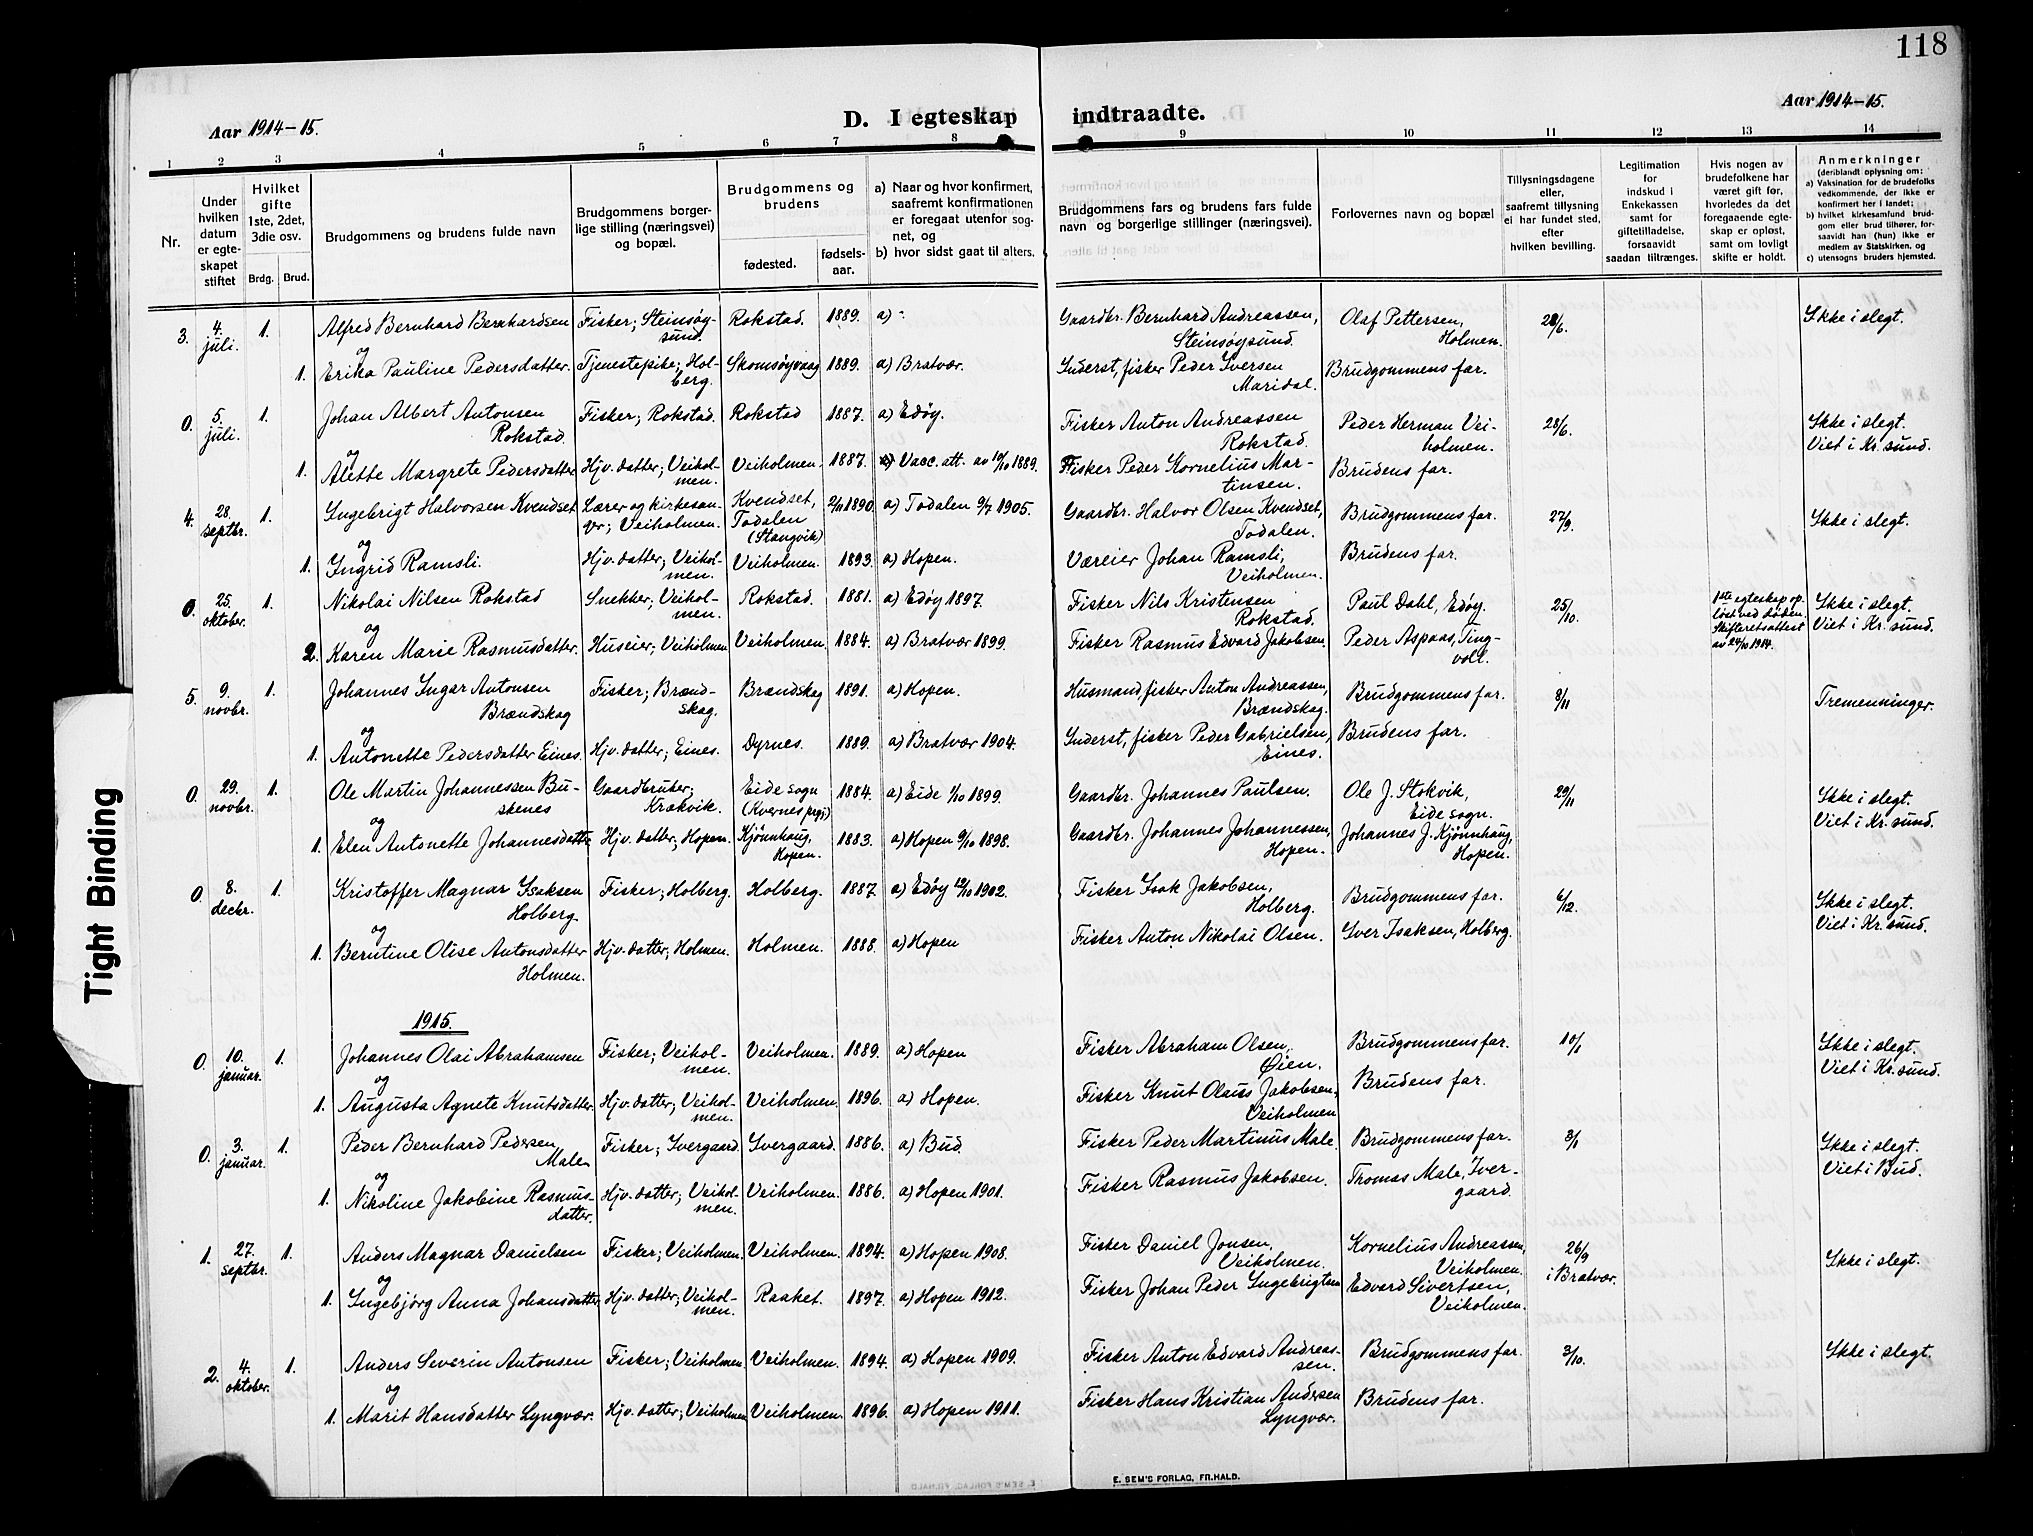 118
Aar 1914-15.
D. I egteskap indtraadte.
Aar 1914-15.
1 2 3 4 5 6 7 8 9 10 11 12 13 14
Nr.
Under hvilken datum er egte-skapet stiftet
Hvilket gifte 1ste, 2det, 3die osv.
Brdg. Brud.
Brudgommens og brudens fulde navn
Brudgommens borger-lige stilling (næringsvei) og bopæl.
Brudgommens og brudens
fødested.
fødsels-aar.
a) Naar og hvor konfirmert, saafremt konfirmationen er foregaat utenfor sog-net, og
b) hvor sidst gaat til alters.
Brudgommens fars og brudens fars fulde navn og borgerlige stillinger (næringsvei).
Forlovernes navn og bopæl
Tillysningsdagene eller, saafremt tillysning ei har fundet sted, efter hvilken bevilling.
Legitimation for indskud i Enkekassen samt for giftetilladelse, forsaavidt saadan tiltrænges.
Hvis nogen av brudefolkene har været gift før, hvorledes da det foregaaende egte-skap er opløst, samt om lovligt skifte er holdt.
Anmerkninger (deriblandt oplysning om:
a) Vaksination for de brudefolks vedkommende, der ikke er konfirmert her i landet;
b) hvilket kirkesamfund brud-gom eller brud tilhører, for-saavidt han (hun) ikke er medlem av Statskirken, og
c) utensogns bruders hjemsted.
3. 4. juli. 1. Alfred Bernhard Bernhardsen Fisker; Steinsøy-sund. Rokstad. 1889. a) - Gaardbr. Bernhard Andreassen, Steinsøysund. Olaf Pettersen, Holmen. 28/6. Ikke i slegt.
og
1. Erika Pauline Pedersdatter. Tjenestepike; Hol-berg. Skomsøyvaag 1889. a) Bratvær. Inderst, fisker Peder Iversen Maridal. Brudgommens far.
0. 5. juli. 1. Johan Albert Antonsen Rokstad. Fisker; Rokstad. Rokstad 1887. a) Edøy. Fisker Anton Andreassen Rokstad. Peder Herman Vei-holmen. 28/6. Ikke i slegt. Viet i Kr.sund.
og
1. Alette Margrete Pedersdatter Hjv. datter; Veihol-men. Veiholmen. 1887. a) Vacc. att. av 10/10 1889. Fisker Peder Kornelius Mar-tinsen. Brudens far.
4. 28. septbr. 1. Ingebrigt Halvorsen Kvendset Lærer og kirkesan-gr; Veiholmen. Kvendset, Todalen (Stangvik) 2/11 1890. a) Todalen 9/7 1905. Gaardbr. Halvor Olsen Kvendset, Todalen. Brudgommens far. 27/9. Ikke i slegt.
og
1. Ingrid Ramsli. Hjv. datter; Veihol-men. Veiholmen. 1893. a) Hopen. Væreier Johan Ramsli, Veiholmen. Brudens far.
0. 25. oktober. 1. Nikolai Nilsen Rokstad Snekker; Veihol-men. Rokstad. 1881. a) Edøy 1897. Fisker Nils Kristensen Rokstad. Paul Dahl, Edøy. 25/10. 1ste egteskap op-løst ved døden. Skifteretsattest av 24/10 1914. Ikke i slegt. Viet i Kr.sund.
og
2. Karen Marie Rasmusdatter. Huseier; Veiholmen Veiholmen. 1884. a) Bratvær 1899. Fisker Rasmus Edvard Jakobsen. Peder Aspaas, Ting-voll.
5. 9. novbr. 1. Johannes Ingar Antonsen Brændskag Fisker; Brænd-skag. Brændskag 1891. a) Hopen. Husmand, fisker Anton Andreassen, Brændskag. Brudgommens far. 8/11 Tremenninger.
og
1. Antonette Pedersdatter Eines. Hjv. datter; Eines. Dyrnes. 1889. a) Bratvær 1904. Inderst, fisker Peder Gabrielsen, Eines. Brudens far.
0. 29. novbr. 1. Ole Martin Johannessen Bu-skenes Gaardbruker; Krækvik. Eide sogn (Kvernes prgj) 1884. a) Eide 1/10 1899. Gaardbr. Johannes Paulsen. Ole J. Stokvik, Eide sogn. 29/11 Ikke i slegt. Viet i Kr.sund.
og
1. Elen Antonette Johannesdatter Hjv. datter; Hopen. Kjønnhaug, Hopen. 1883. a) Hopen 9/10 1898. Gaardbr. Johannes Johannessen, Hopen. Johannes J. Kjønnhaug, Hopen.
0. 8. decbr. 1. Kristoffer Magnar Isaksen Holberg. Fisker; Holberg. Holberg. 1887. a) Edøy 12/10 1902. Fisker Isak Jakobsen, Holberg. Brudgommens far. 6/12. Ikke i slegt. Viet i Kr.sund.
og
1. Berntine Olise Antonsdatter Holmen. Hjv. datter; Holmen. Holmen. 1888. a) Hopen Fisker Anton Nikolai Olsen. Iver Isaksen, Holberg.
1915.
0. 10. januar. 1. Johannes Olai Abrahamsen Fisker; Veihol-men. Veiholmen. 1889. a) Hopen Fisker Abraham Olsen, Øien. Brudgommens far. 10/1 Ikke i slegt. Viet i Kr.sund.
og
1. Augusta Agnete Knutsdatter. Hjv. datter; Veihol-men. Veiholmen. 1896. a) Hopen. Fisker Knut Olaus Jakobsen, Veiholmen Brudens far.
0. 3. januar. 1. Peder Bernhard Pedersen Male Fisker; Ivergaard. Ivergaard. 1886. a) Bud. Fisker Peder Martinus Male. Brudgommens far. 3/1 Ikke i slegt. Viet i Bud.
og
1. Nikoline Jakobine Rasmus-datter. Hjv. datter; Veihol-men. Veiholmen. 1886. a) Hopen 1901. Fisker Rasmus Jakobsen. Thomas Male, Iver-gaard.
1. 27. septbr. 1. Anders Magnar Danielsen Fisker; Veiholmen. Veiholmen. 1894. a) Hopen 1908. Fisker Daniel Jonsen, Veiholmen. Kornelius Andreassen, Veiholmen. 26/9 i Bratvær. Ikke i slegt.
og
1. Ingebjørg Anna Johansdatter Hjv. datter; Veihol-men. Raaket. 1897. a) Hopen 1912. Fisker Johan Peder Ingebrigtsen Edvard Sivertsen, Veiholmen.
2. 4. oktober. 1. Anders Severin Antonsen Fisker; Veiholmen. Veiholmen. 1894. a) Hopen 1909. Fisker Anton Edvard Andreas-sen. Brudgommens far. 3/10. Ikke i slegt.
og
1. Marit Hansdatter Lyngvær. Hjv. datter; Veiholmen Veiholmen. 1896. a) Hopen 1911. Fisker Hans Kristian Andersen Lyngvær. Brudens far.
E. SEM'S FORLAG, FR.HALD.
Tight Binding